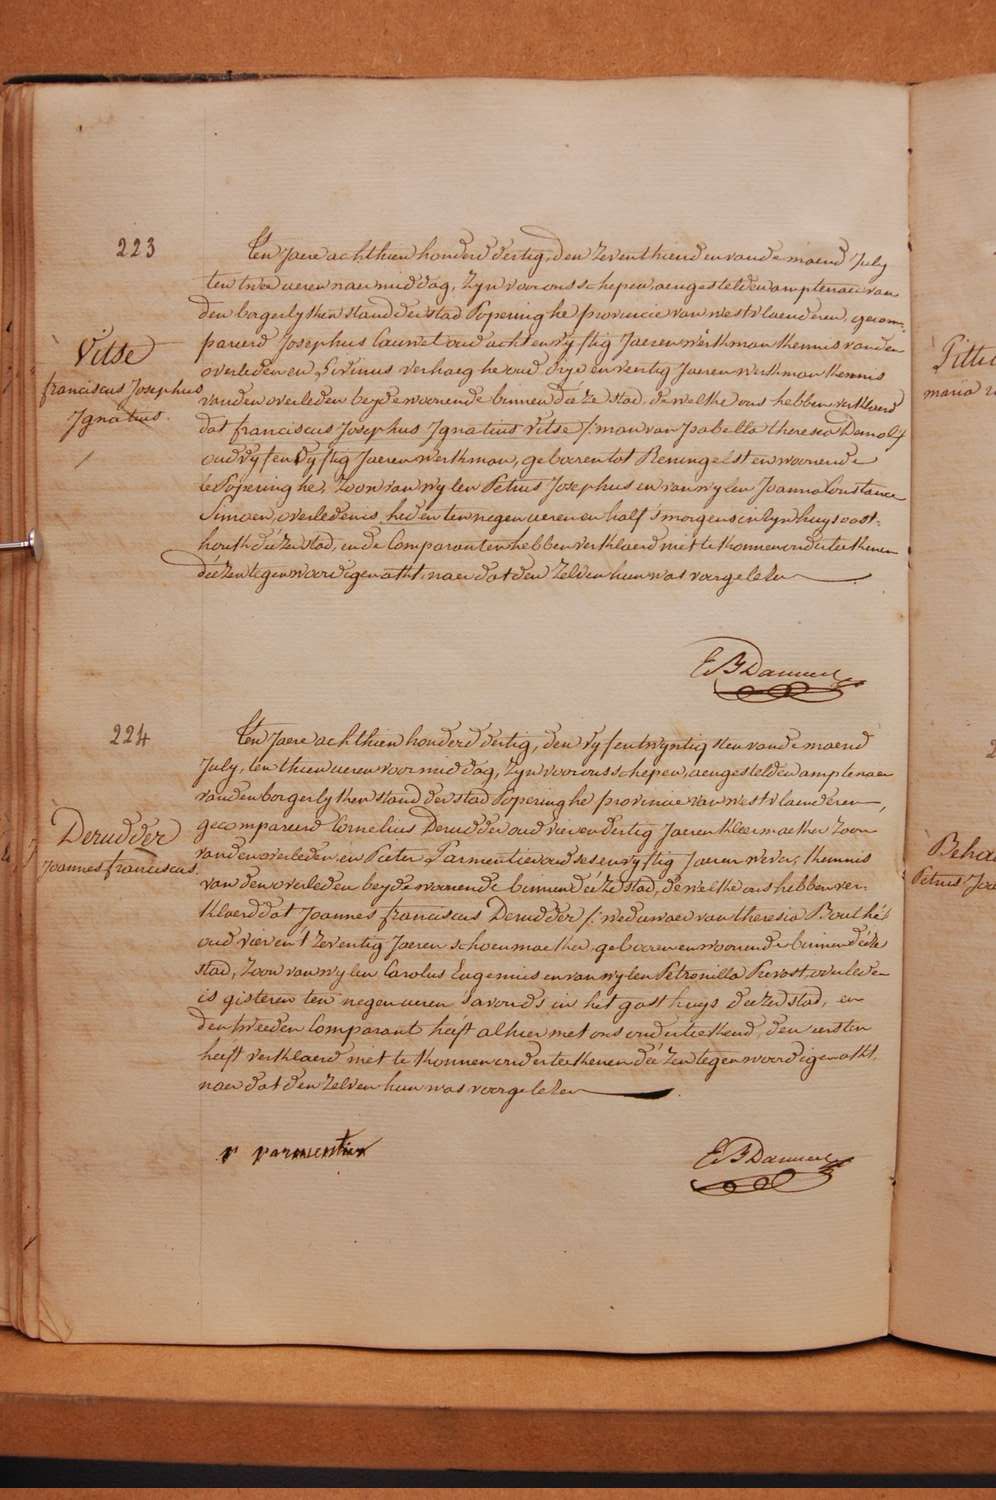 223
Vitse
franciscus Josephus
Ignatius.
Ten Jaere achthien honderd dertig, den zeventhienden vande maend July
ten twee ueren naermiddag, zyn voor ons schepen aengestelden amptenaer van
den borgerlyken stand der stad Poperinghe provincie van westvlaenderen, gecom-
pareerd Josephus Cauwet oud acht en vyftig Jaeren werkman kennis van den
overleden en Livinus verhaeghe oud drye en veertig Jaeren werkman kennis
van den overleden beyde woonende binnen deéze stad, dewelke ons hebben verklaerd
dat franciscus Josephus Ignatius vitse /: man van Isabella theresia Demol :/
oud vyf en vyftig Jaeren werkman, geboren tot Reningelst en woonende
te Poperinghe, zoon van wylen Petrus Josephus en van wylen Joanna Constance
Simoen, overleden is heden ten negen ueren en half 's morgens in zyn huys oost-
houk deézer stad, en de Comparanten hebben verklaerd niet te konnen onderteekenen
deézen tegenwoordigen akt, naer dat den zelven hun was voorgelezen
E B Danneel
224
Derudder
Joannes franciscus.
Ten Jaere achthien honderd dertig, den vyfentwyntigsten vande maend
July, ten thien ueren voormiddag, zyn voor ons schepen, aengestelden amptenaer
van den borgerlyken stand der stad Poperinghe provincie van westvlaenderen,
gecompareerd Cornelius Derudder oud vier en dertig Jaeren kleermaeker zoon
van den overleden en Pieter Parmentier oud ses en vyftig Jaeren wever, kennis
van den overleden beyde woonende binnen deéze stad, dewelke ons hebben ver-
klaerd dat Joannes franciscus Derudder /: weduwaer van theresia Bouthé :/
oud vier en 't zeventig Jaeren schoenmaeker, geboren en woonende binnen deéze
stad, zoon van wylen Carolus Eugenius en van wylen Petronilla Prevost, overleden
is gisteren ten negen ueren 's avonds in het gasthuys deezer stad, en
den tweeden Comparant heéft alhier met ons onderteekend, den eersten
heeft verklaerd niet te konnen onderteekenen deézen tegenwoordigen akt,
naer dat den zelven hun was voorgelezen
p parmentier
E B Danneel
Pittel
maria
Beha
Petrus Jo